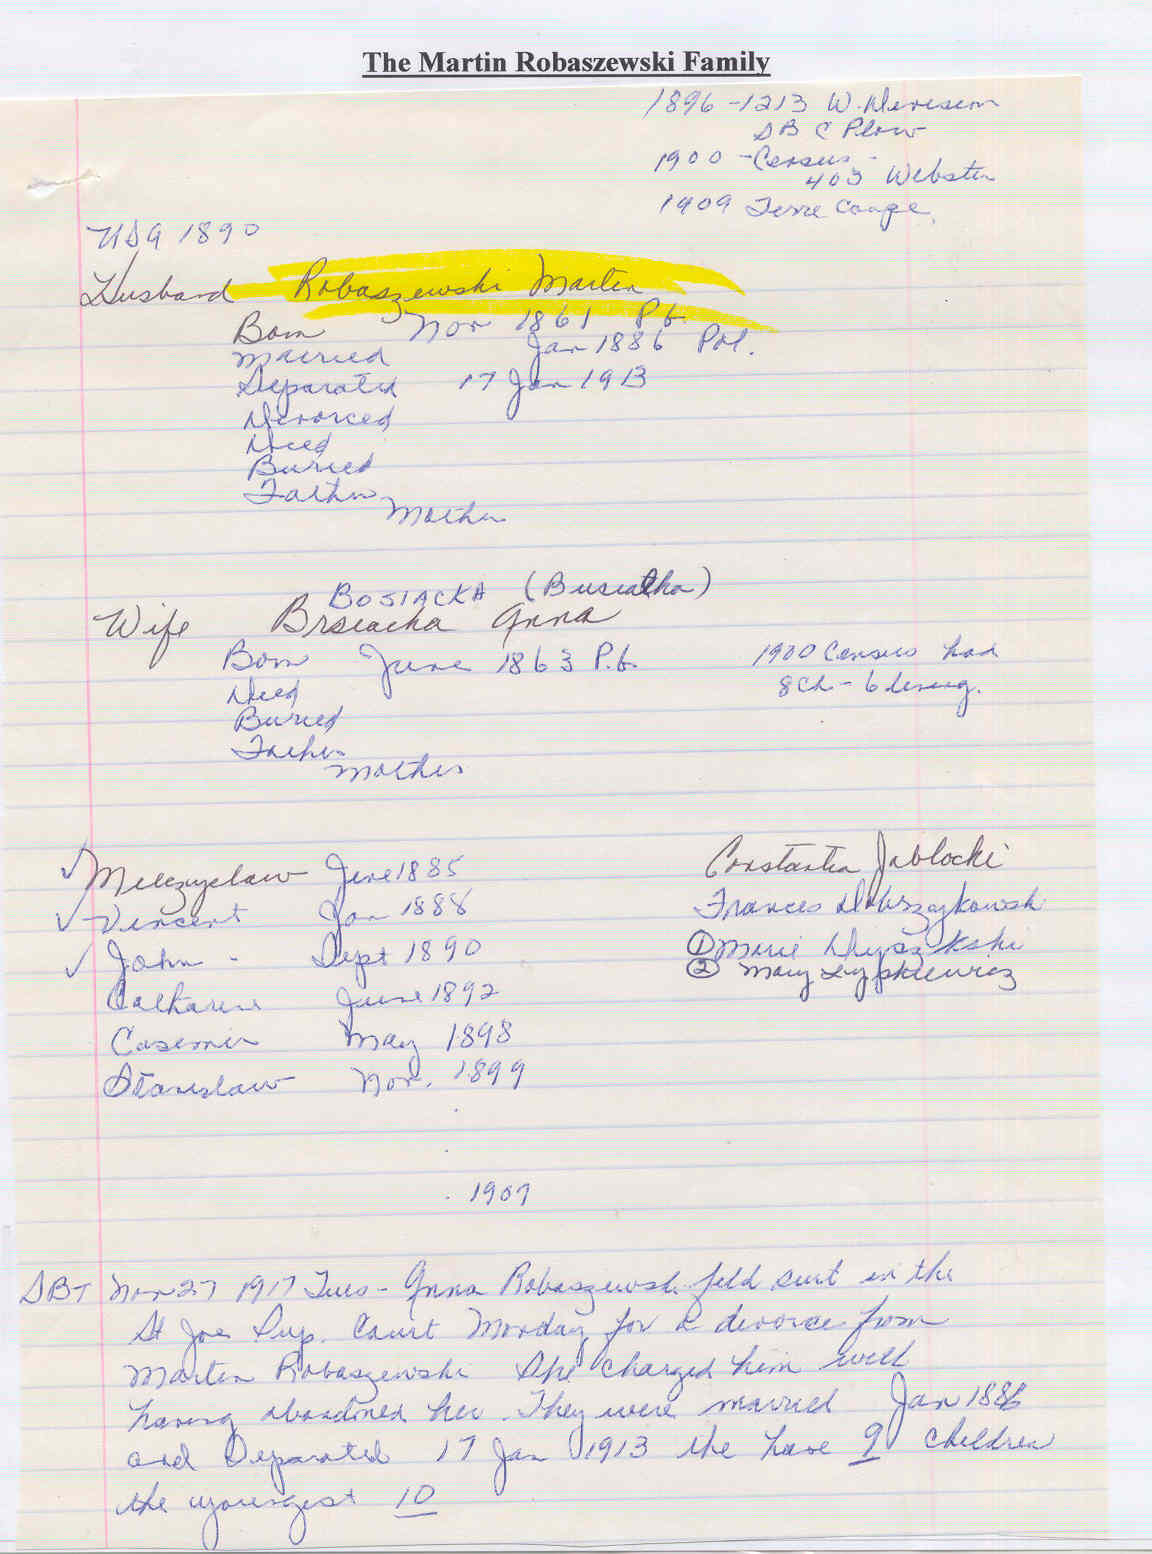 The Martin Robaszewski Family
1896 - 1213 W. Division
SB C Plow
1900 - Census -
403 Webster
1909 Terre Coupe
USA 1890
Husband Robaszewski Martin
Born Nov 1861
Married Jan 1886 Pol.
Separated 17 Jan 1913
Divorced
Died
Buried
Father
Mother
BOSIACKA
Wife Anna
Born June 1863
1900 Census had
8 Ch - 6 living.
Died
Buried
Father
Mother
Mieczyslaw June 1885 Constantia Jablocki
Vincent Jan 1888 Frances
John - Sept 1890 ① Marie
② Mary
Catharine June 1892
Casemir May 1898
Stanislaw Nov. 1899
1907
SBT Nov 27 1917 Tues - Anna Robaszewski filed suit in the
St Joe Sup. Court Monday for a divorce from
Martin Robaszewski She charged him with
having abandoned her. They were married Jan 1886
and Separated 17 Jan 1913 the have 9 children
the youngest 10